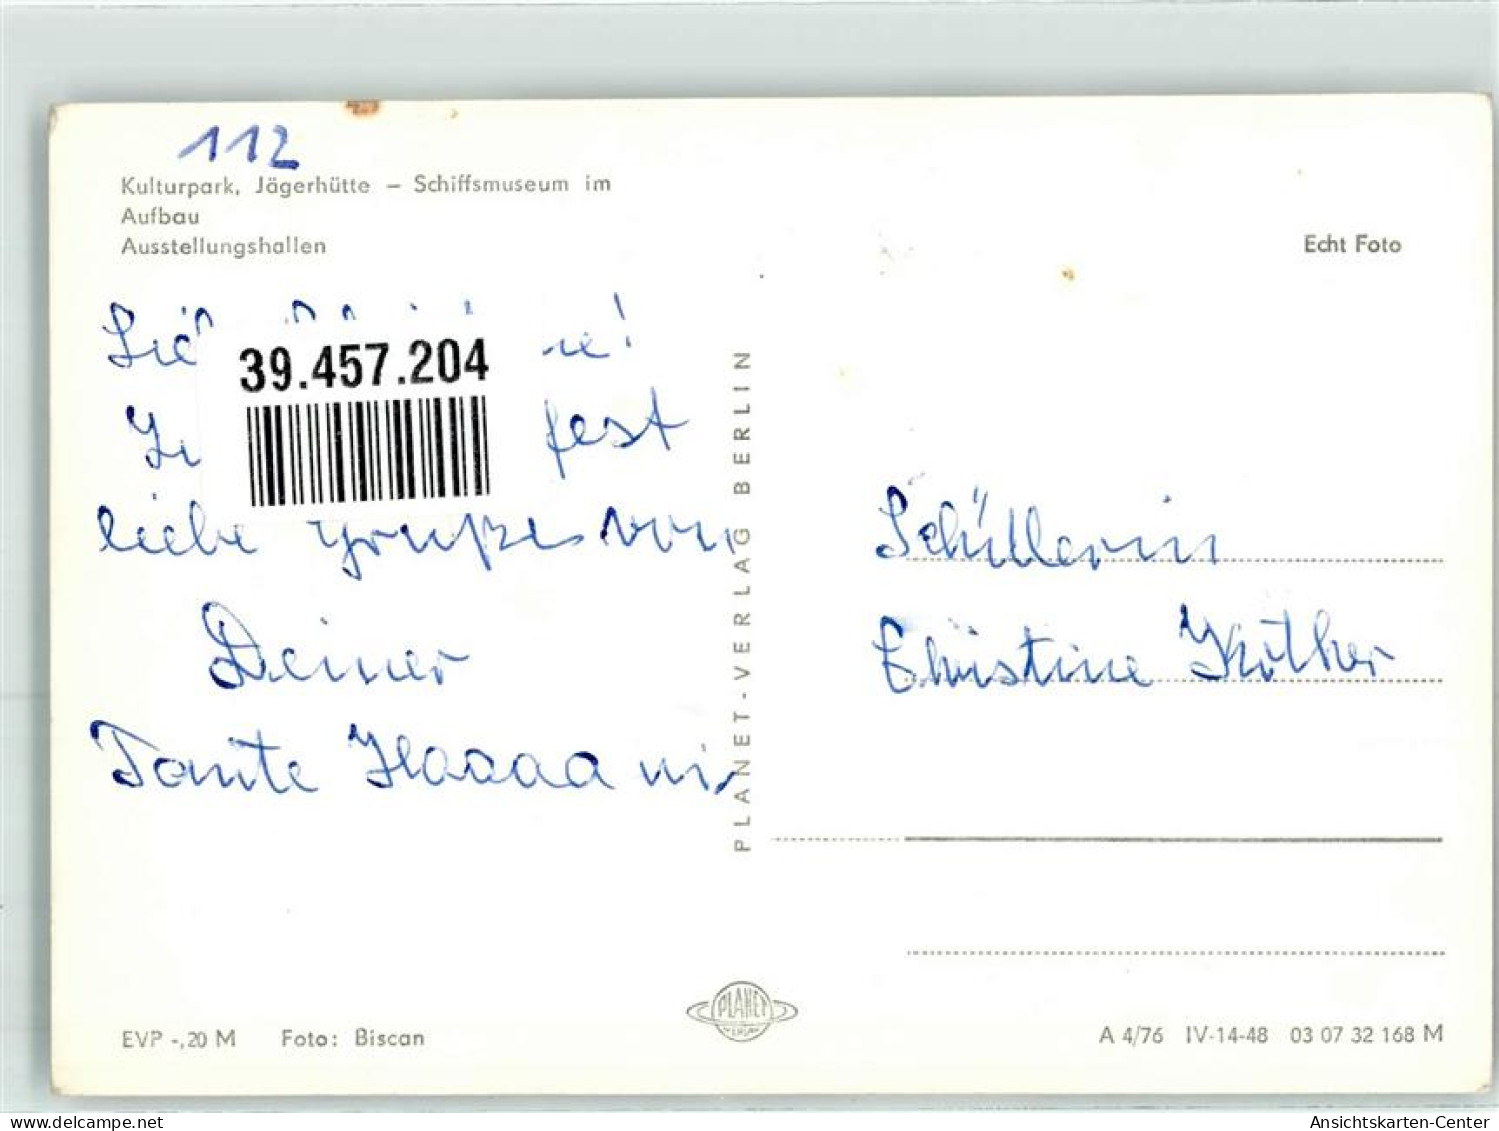 112
Kulturpark, Jägerhütte – Schiffsmuseum im
Aufbau
Ausstellungshallen
Echt Foto
39.457.204
fest
liebe Grüße von
Deiner
Tante
PLANET-VERLAG BERLIN
Schüllerin
Christine
PLANET
VERLAG
EVP -,20 M Foto: Biscan
A 4/76 IV-14-48 03 07 32 168 M
www.delcampe.net
Ansichtskarten-Center